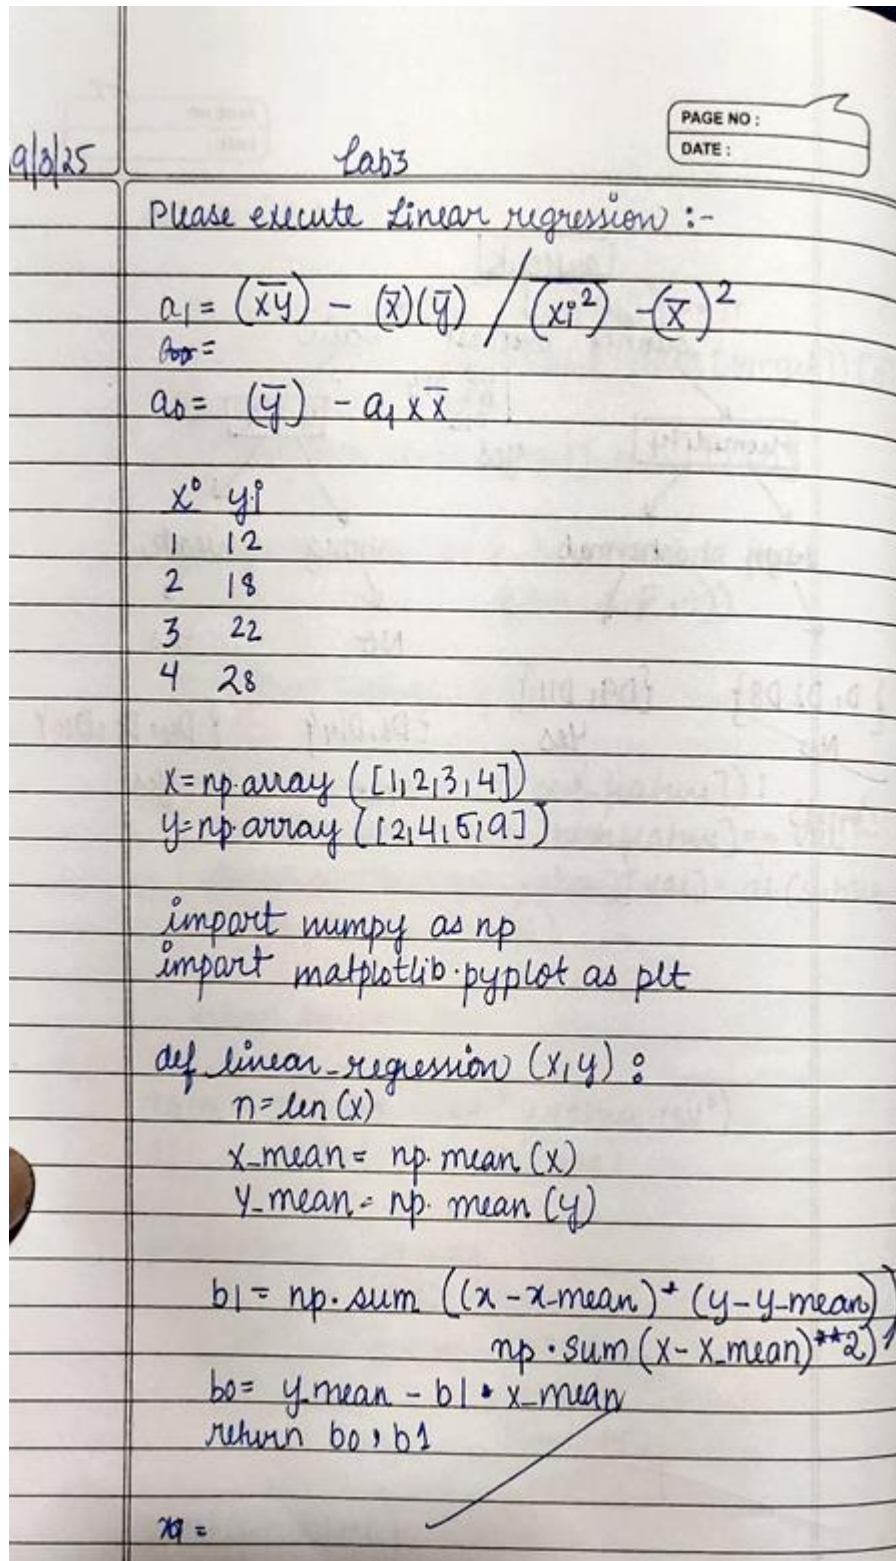 PAGE NO :
DATE :
9/8/25 Lab3
Please execute Linear regression :-
a1 = (x̅y̅) - (x̅)(y̅) / (x̅i̅²̅) - (x̅)²
a0 = (y̅) - a1 x x̅
xi yi
1 12
2 18
3 22
4 28
x=np.array([1,2,3,4])
y=np.array([2,4,5,9])
import numpy as np
import matplotlib.pyplot as plt
def linear_regression (x,y) :
n=len(x)
x_mean = np.mean(x)
y_mean = np.mean(y)
b1 = np.sum ((x - x-mean) * (y-y-mean))
np.sum(x-x_mean)**2)
b0= y_mean - b1 * x_mean
return b0, b1